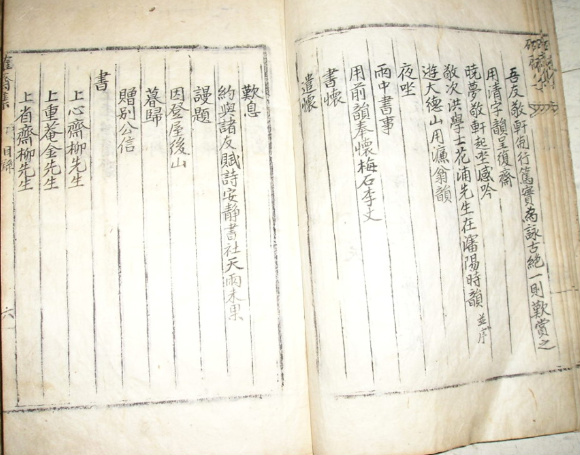 吾友敬軒制行篤實為詠古絶一則歎賞之
用清字韻呈復齋
晩夢敬軒起坐感吟
敬次洪學士花浦先生在瀋陽時韻並序
遊大德山用濂翁韻
夜坐
雨中書事
用前韻奉懷梅石李丈
書懷
遣懷
歎息
約與諸友賦詩安靜書社天雨未果
謾題
因登屋後山
暮歸
贈別公信
書
上心齋柳先生
上重菴金先生
上省齋柳先生
齋集
目錄
六